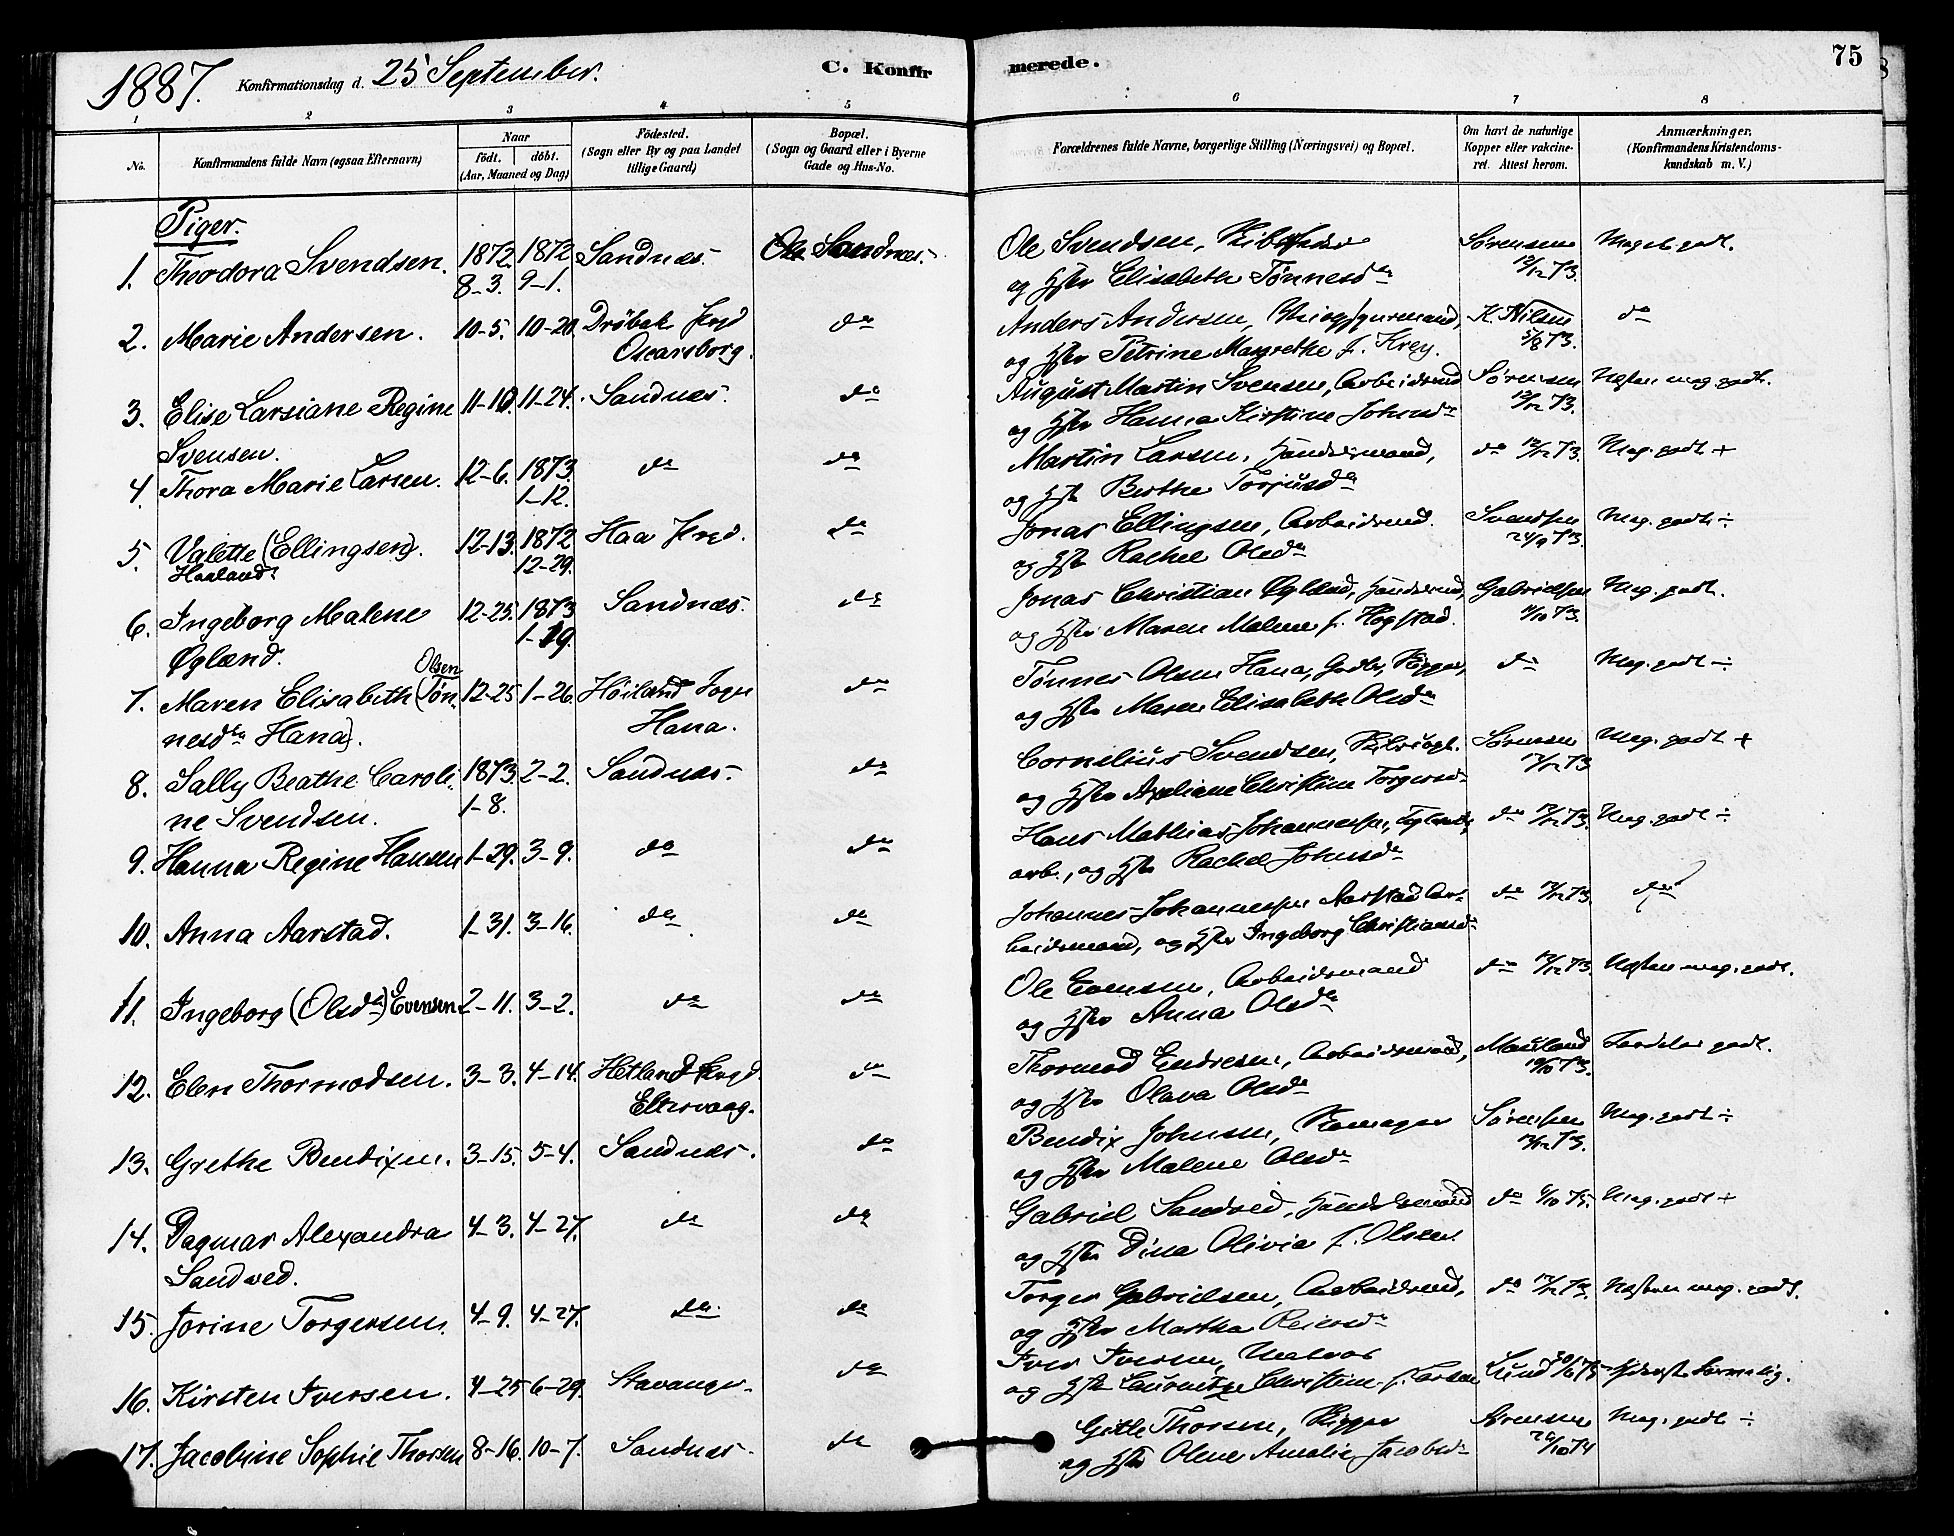 1887. Konfirmationsdag d. 25 September. C. Konfirmerede. 75
1 2 3 4 5 6 7 8
No. Konfirmandens fulde Navn (ogsaa Efternavn) Naar födt. döbt. (Aar, Maaned og Dag) Födested. (Sogn eller By og paa Landet tillige Gaard) Bopæl. (Sogn og Gaard eller i Byerne Gade og Hus-No. Forældrenes fulde Navne, borgerlige Stilling (Næringsvei) og Bopæl. Om havt de naturlige Kopper eller vakcineret. Attest herom. Anmærkninger. (Konfirmandens Kristendomskundskab m. V.)
Piger.
1. Theodora Svendsen. 1872 8-3. 1872 9-1. Sandnes. Sandnes. Ole Svendsen,
og Hstr Elisabeth Tønnesdtr Sørensen 12/12 73. Meget godt.
2. Marie Andersen. 10-5. 10-20. Drøbak Prgd Oscarsborg. do Anders Andersen,
og Hstr Petrine Margrethe f. Krey. K. Nilsen 5/8 73. do
3. Elise Larsiane Regine Svensen. 11-10. 11-24. Sandnes. do August Martin Svensen, Arbeidsmd
og Hstr Hanna Kirstine Johnsdr Sørensen 12/12 73. Næsten meg. godt.
4. Thora Marie Larsen. 12-6. 1873. 1-12. do do Martin Larsen, Handelsmand,
og Hstr Berthe Torjusdr do 12/12 73. Meg. godt +
5. Valette (Ellingsen). Haaland 12-13. 1872 12-29. Haa Prgd. do Jonas Ellingsen, Arbeidsmd.
og Hstr Rachel Olsdr Svendsen 24/9 73. Meg. godt ÷
6. Ingeborg Malene Øglænd. 12-25. 1873 1-19. Sandnes. do Jonas Christian Øglænd, Handelsmd,
og Hstr Maren Malene f. Høgstad. Gabrielsen 11/10 73. Meg. godt.
7. Maren Elisabeth (Tønnesdtr Hana). Olsen 12-25 1-26. Høiland Sogn Hana. do Tønnes Olsen Hana, Gaardbr, Skipper,
og Hstr Maren Elisabeth Olsdr do Meg. godt ÷
8. Sally Beathe Caroline Svendsen. 1873 1-8. 2-2. Sandnes. do Cornelius Svendsen,
og Hstr Axeliane Christine Torgersdr Sørensen 12/12 73 Meg. godt +
9. Hanna Regine Hansen 1-29. 3-9. do do Hans Mathias Johannessen,
arb., og Hstr Rachel Johnsdr do 12/12 73. Meg. godt ÷
10. Anna Aarstad. 1-31. 3-16. do do Johannes Johannessen Aarstad Arbeidsmand, og Hstr Ingeborg Christiansdr do 12/12 73. do
11. Ingeborg (Olsdtr) Evensen 2-11. 3-2. do do Ole Evensen, Arbeidsmand
og Hstr Anna Olsdr do 12/12 73. Næsten meg. godt.
12. Elen Thormodsen. 3-3. 4-14. Hetland Prgd. Eltervaag. do Thormod Endresen, Arbeidsmand,
og Hstr Olava Olsdr Mauland 10/10 73. Særdeles godt.
13. Grethe Bendixen. 3-15. 5-4. Sandnes. do Bendix Johnsen, Skomager
og Hstr Malene Olsdr Sørensen 12/12 73. Meg. godt ÷
14. Dagmar Alexandra Sandved. 4-3. 4-27. do do Gabriel Sandved, Handelsmand
og Hstr Dina Olivia f. Olsen. do 6/10 75. Meg. godt +
15. Jorine Torgersen. 4-9. 4-27. do do Torger Gabrielsen, Arbeidsmd,
og Hstr Martha Reiersdr do 12/12 73. Næsten meg. godt.
16. Kirsten Iversen. 4-25 6-29. Stavanger. do Iver Iversen, Matros
og Hstr Lauritze Christine f. Larsen Lund 30/6 75
17. Jacobine Sophie Thorsen 8-16. 10-7. Sandnes. do Gitle Thorsen, Skipper
og Hstr Olene Amalie Jacobsdr Sørensen 26/10 74 Meg. godt ÷